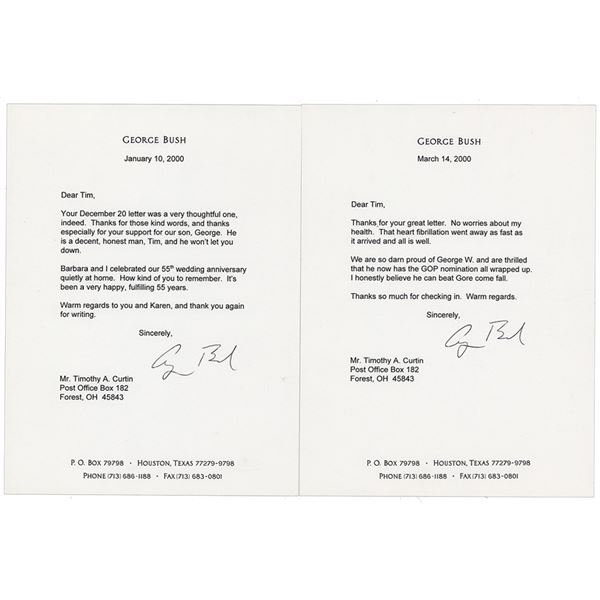 GEORGE BUSH
January 10, 2000
Dear Tim,
Your December 20 letter was a very thoughtful one,
indeed. Thanks for those kind words, and thanks
especially for your support for our son, George. He
is a decent, honest man, Tim, and he won't let you
down.
Barbara and I celebrated our 55th wedding anniversary
quietly at home. How kind of you to remember. It's
been a very happy, fulfilling 55 years.
Warm regards to you and Karen, and thank you again
for writing.
Sincerely,
G Bush
Mr. Timothy A. Curtin
Post Office Box 182
Forest, OH 45843
P. O. BOX 79798 · HOUSTON, TEXAS 77279-9798
PHONE (713) 686-1188 · FAX (713) 683-0801
GEORGE BUSH
March 14, 2000
Dear Tim,
Thanks for your great letter. No worries about my
health. That heart fibrillation went away as fast as
it arrived and all is well.
We are so darn proud of George W. and are thrilled
that he now has the GOP nomination all wrapped up.
I honestly believe he can beat Gore come fall.
Thanks so much for checking in. Warm regards.
Sincerely,
G Bush
Mr. Timothy A. Curtin
Post Office Box 182
Forest, OH 45843
P. O. BOX 79798 · HOUSTON, TEXAS 77279-9798
PHONE (713) 686-1188 · FAX (713) 683-0801